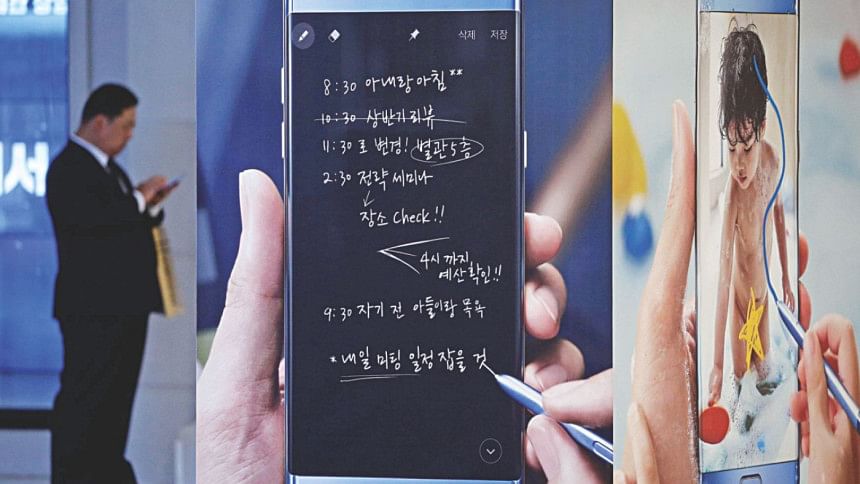 삭제 저장
8:30 아내랑 아침**
10:30 상반기 리뷰
11:30 로 변경! 별관 5층
2:30 전략 세미나
장소 check!!
4시 까지
예산확인!!
9:30 자기 전 아들이랑 목욕
* 내일 미팅 일정 잡을 것